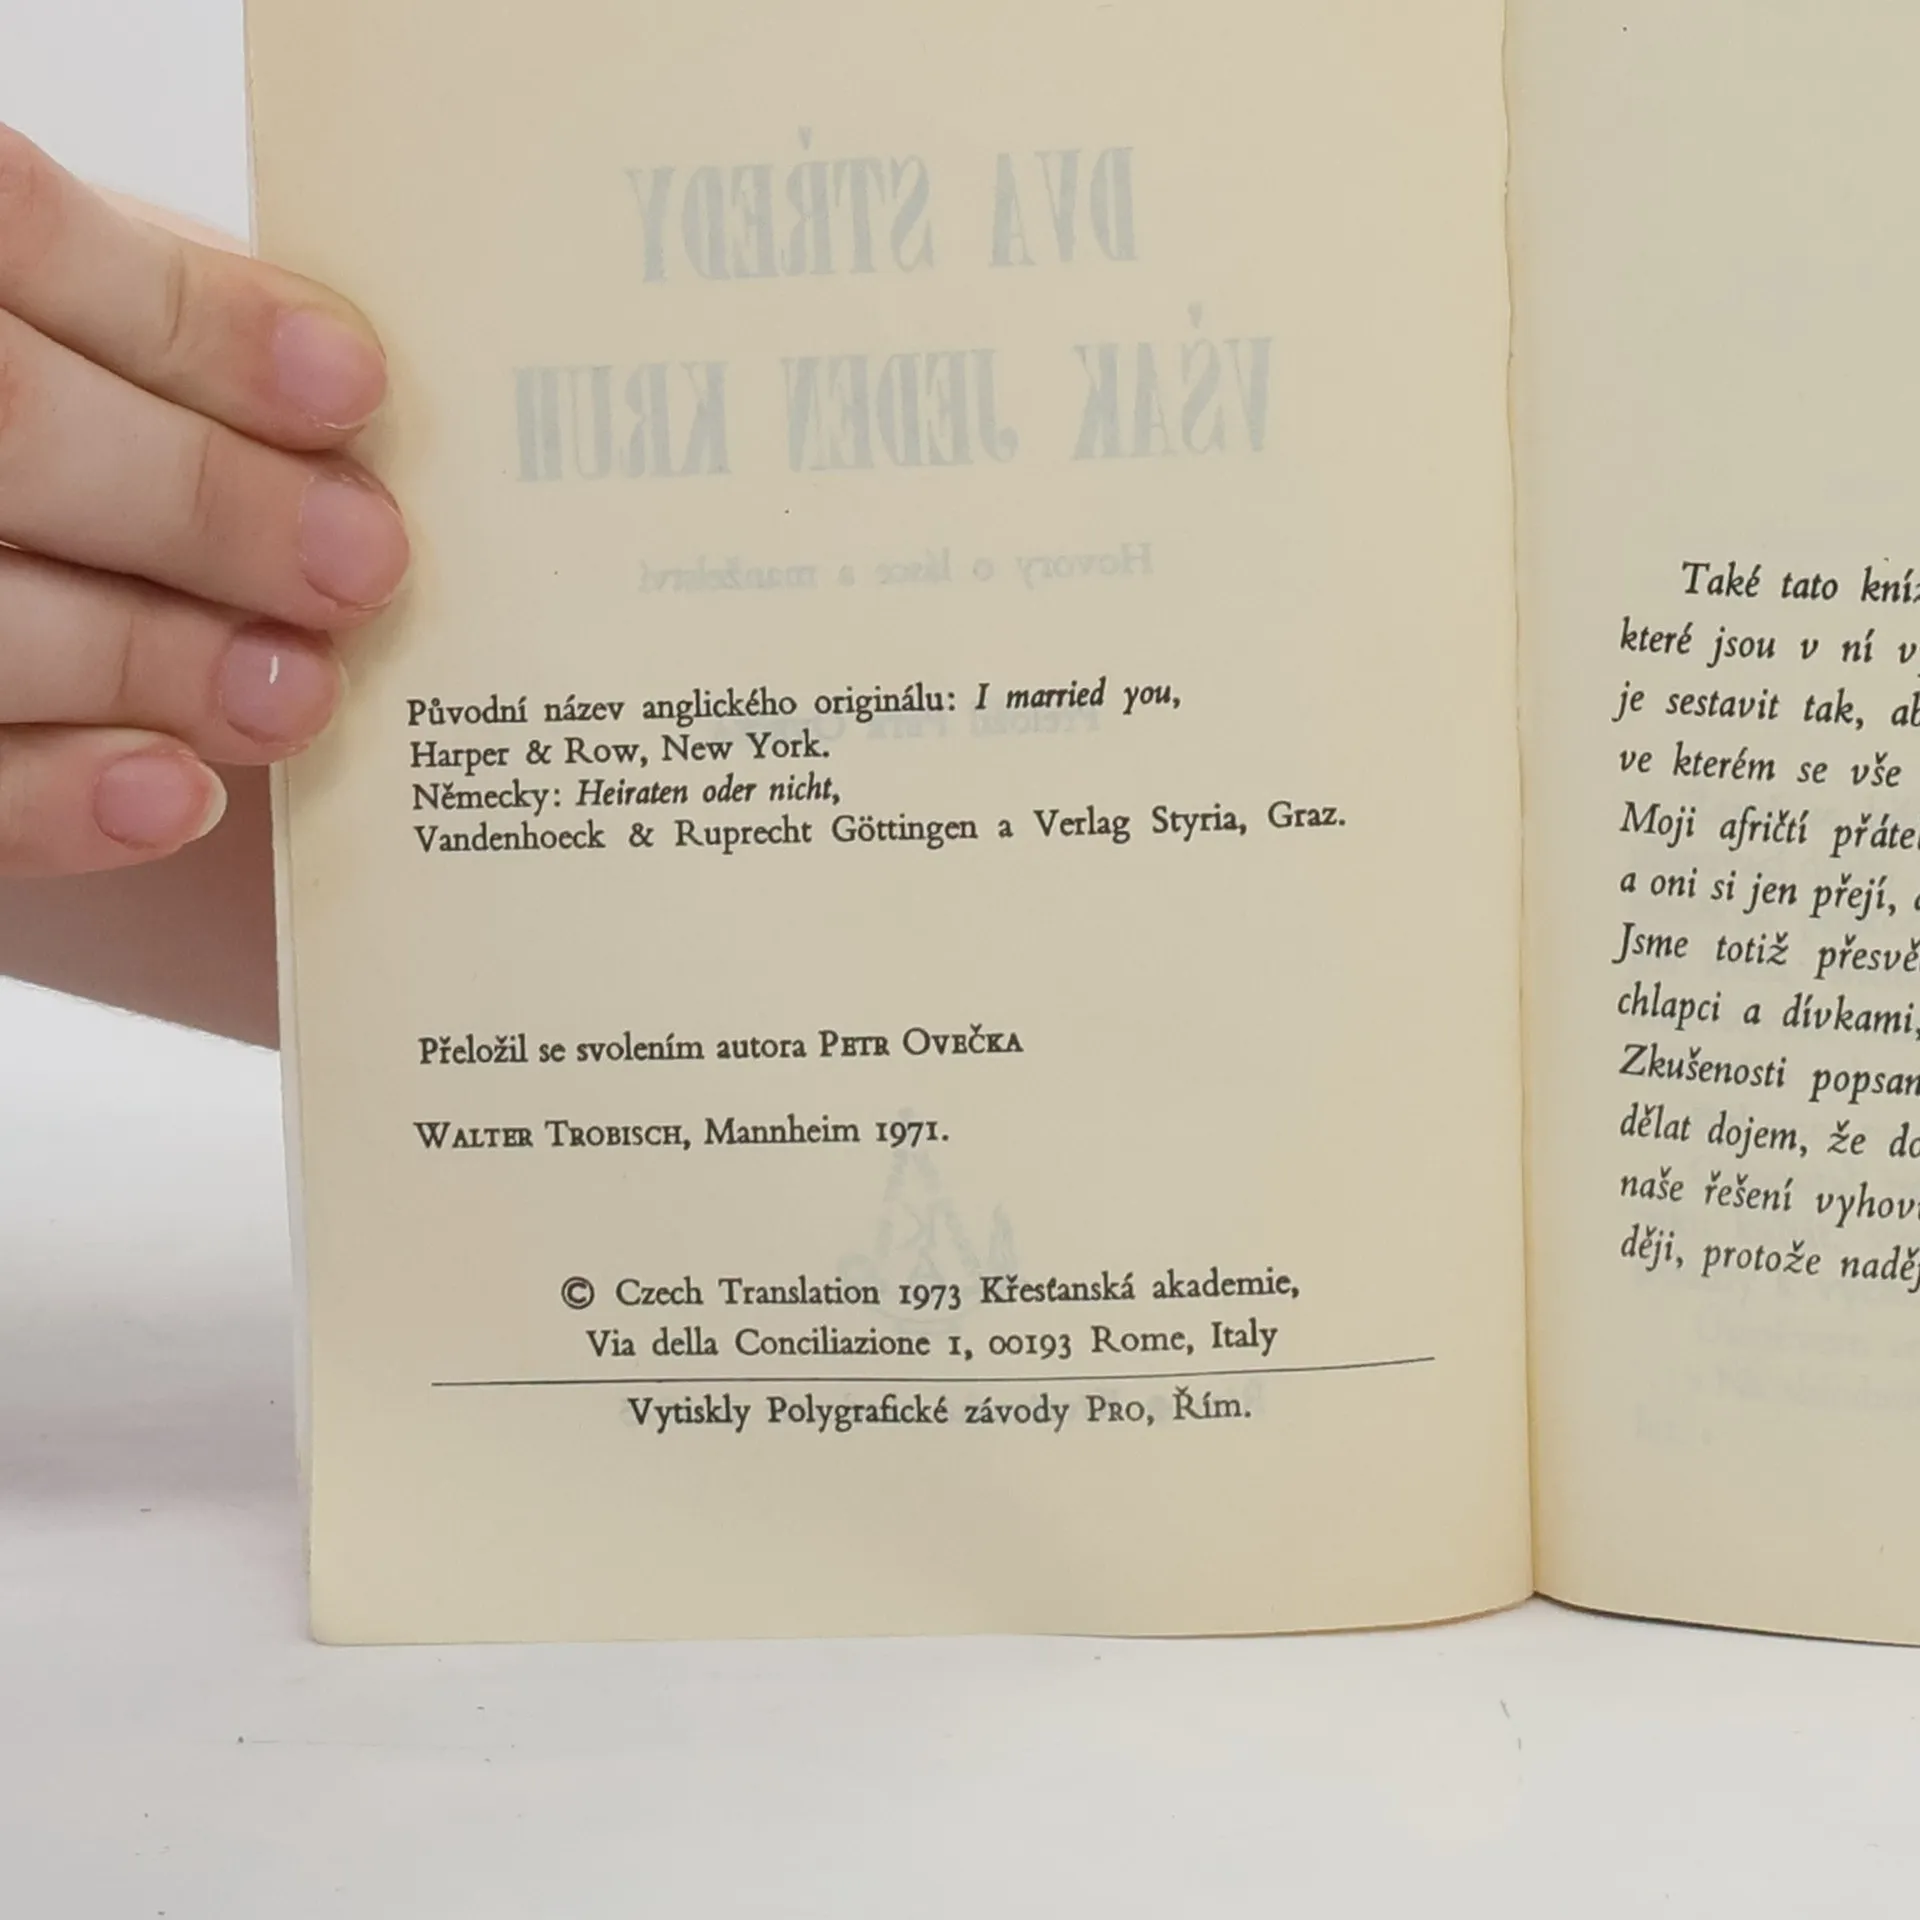 DVA STŘEDY
VŠAK JEDEN KRUH
Hovory o lásce a manželství
Původní název anglického originálu: I married you,
Harper & Row, New York.
Německy: Heiraten oder nicht,
Vandenhoeck & Ruprecht Göttingen a Verlag Styria, Graz.
Přeložil se svolením autora PETR OVEČKA
WALTER TROBISCH, Mannheim 1971.
© Czech Translation 1973 Křesťanská akademie,
Via della Conciliazione 1, 00193 Rome, Italy
Vytiskly Polygrafické závody PRO, Řím.
Také tato
které jsou v ní
je sestavit tak,
ve kterém se vše
Moji afričtí
a oni si jen přejí,
Jsme totiž
chlapci a dívkami,
Zkušenosti
dělat dojem, že
naše řešení
ději, protože